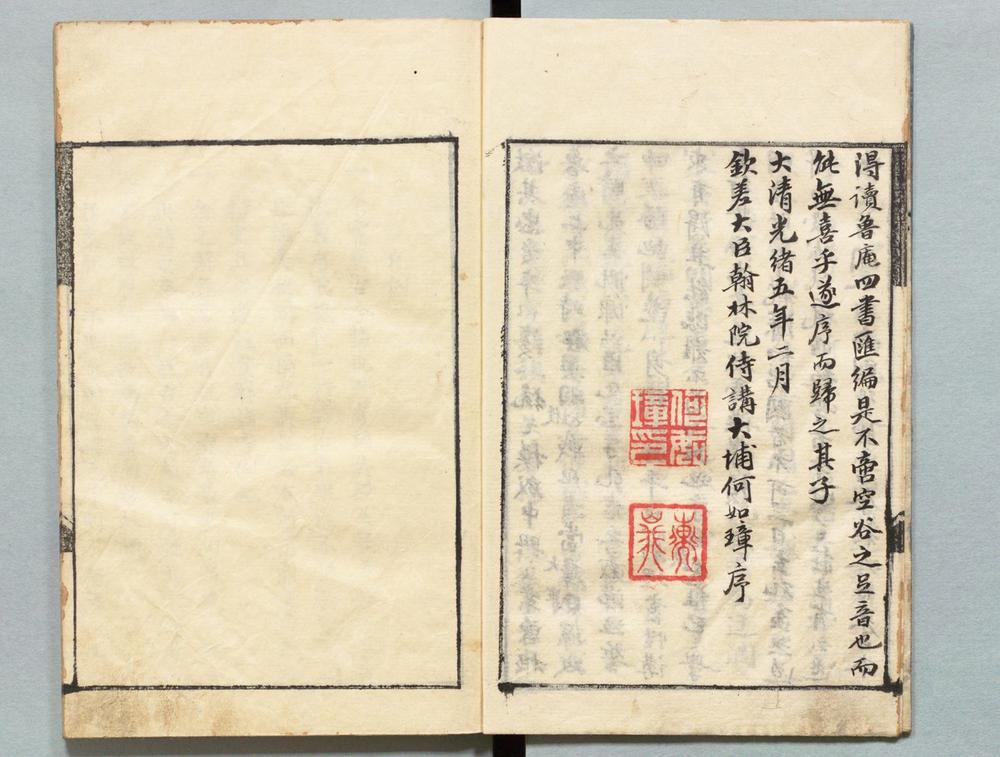 淂讀魯庵四書匯編是不啻空谷之足音也而
能無喜乎遂序而歸之其子
大清光緒五年二月
欽差大臣翰林院侍講大埔何如璋序
何如璋印